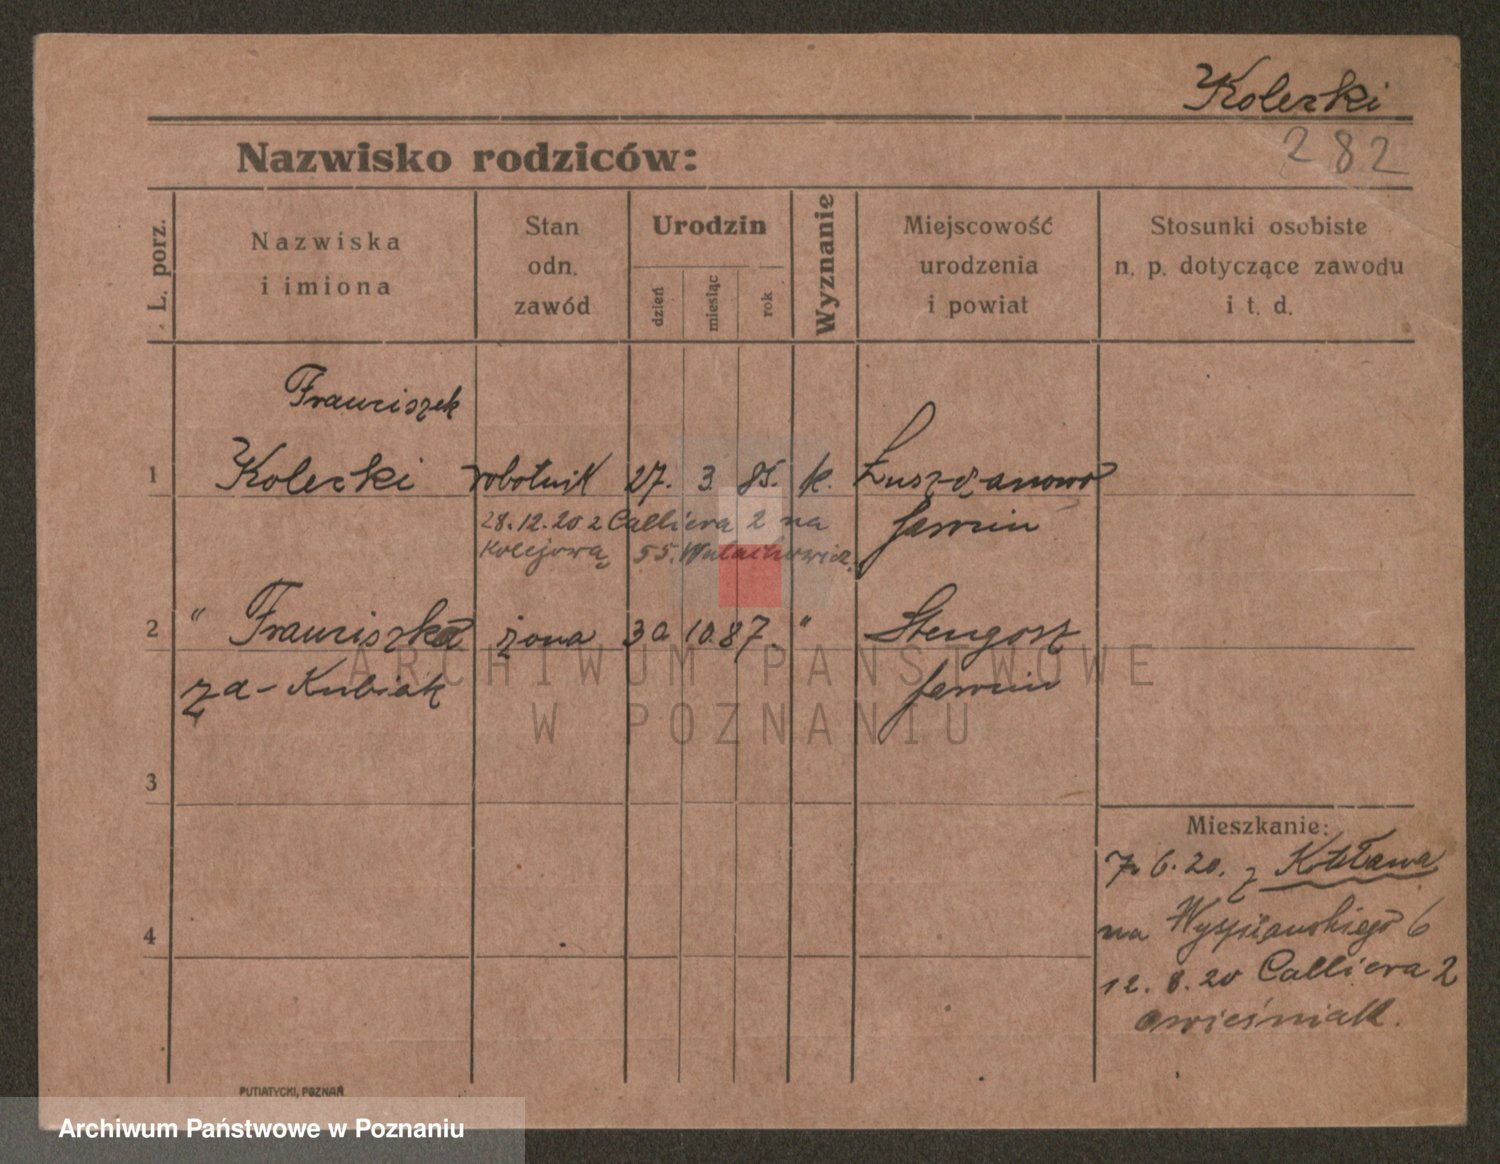 Kolerski
282
Nazwisko rodziców:
L. porz.
Nazwiska
i imiona
Stan
odn.
zawód
Urodzin
dzień
miesiąc
rok
Wyznanie
Miejscowość
urodzenia
i powiat
Stosunki osobiste
n. p. dotyczące zawodu
i t. d.
Franciszek
1 Kolerski robotnik 27. 3. 85. k.
28.12.20 z Calliera 2 na
Kolejową 55.
2 " Franciszka żona 30 10. 87. "
Stengosz
za - Kubiak
Jarocin
3
4
Mieszkanie:
7. 6. 20. z
na Wyspiańskiego 6
12. 8. 20 Calliera 2
PUTIATYCKI, POZNAŃ
ARCHIWUM PAŃSTWOWE
W POZNANIU
Archiwum Państwowe w Poznaniu